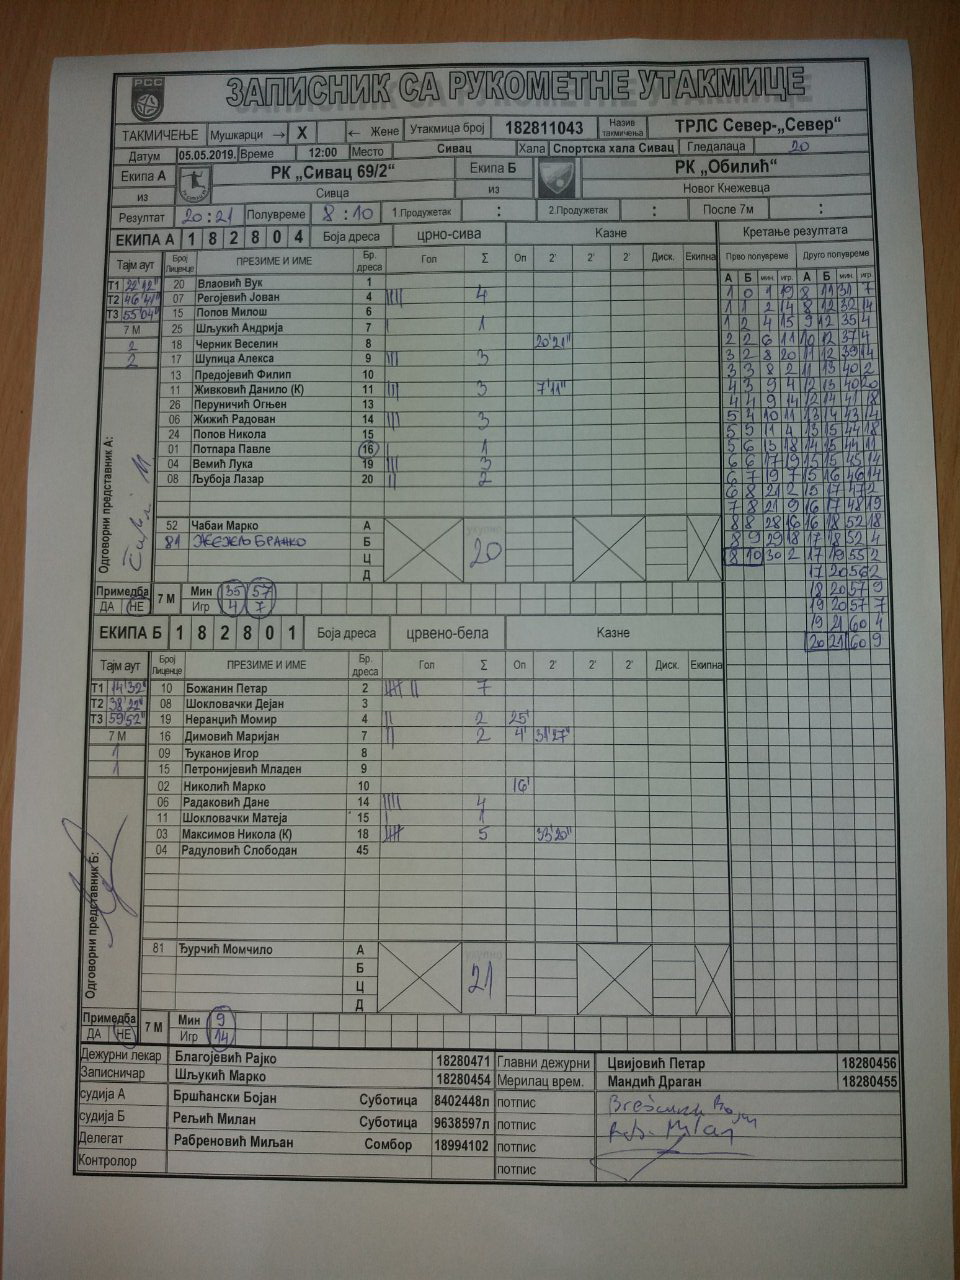 РСС
ЗАПИСНИК СА РУКОМЕТНЕ УТАКМИЦЕ
ТАКМИЧЕЊЕ Мушкарци → X ← Жене Утакмица број 182811043 Назив такмичења ТРЛС Север-„Север“
Датум 05.05.2019. Време 12:00 Место Сивац Хала Спортска хала Сивац Гледалаца 20
Екипа А РК „Сивац 69/2“ Екипа Б РК „Обилић“
из Сивца из Новог Кнежевца
Резултат 20:21 Полувреме 8:10 1.Продужетак : 2.Продужетак : После 7м :
ЕКИПА А 1 8 2 8 0 4 Боја дреса црно-сива Казне Кретање резултата
Тајм аут Број Лиценце ПРЕЗИМЕ И ИМЕ Бр. дреса Гол Σ Оп 2' 2' 2' Диск. Екипна
Т1 22'12"
Т2 46'41"
Т3 55'04"
7 М
2
2
20 Влаовић Вук 1
07 Регојевић Јован 4 |||| 4
15 Попов Милош 6
25 Шљукић Андрија 7 | 1
18 Черник Веселин 8 20'21"
17 Шупица Алекса 9 ||| 3
13 Предојевић Филип 10
11 Живковић Данило (К) 11 ||| 3 7'11"
26 Перуничић Огњен 13
06 Жижић Радован 14 ||| 3
24 Попов Никола 15
01 Потпара Павле 16 | 1
04 Вемић Лука 19 ||| 3
08 Љубоја Лазар 20 || 2
52 Чабаи Марко А
81 ЖЕЖЕЉ БРАНКО Б
Ц
Д
укупно 20
Одговорни представник А:
Примедба ДА НЕ
7 М Мин 35 57
Игр 4 7
Прво полувреме
А Б мин. игр.
1 0 1 19
1 1 2 14
1 2 4 15
2 2 6 11
3 2 8 20
3 3 8 2
4 3 9 4
4 4 9 14
5 4 10 11
5 5 11 4
5 6 13 18
6 6 17 19
6 7 19 7
6 8 21 2
7 8 21 9
8 8 28 16
8 9 29 18
8 10 30 2
Друго полувреме
А Б мин. игр.
8 11 31 7
8 12 32 14
9 12 35 4
10 12 37 4
11 12 39 14
11 13 40 2
12 13 40 20
12 14 41 18
13 14 43 14
13 15 44 18
14 15 44 11
15 15 45 14
15 16 46 14
15 17 47 2
16 17 48 19
16 18 52 18
17 18 52 4
17 19 55 2
17 20 56 2
18 20 57 9
19 20 57 7
19 21 60 4
20 21 60 9
ЕКИПА Б 1 8 2 8 0 1 Боја дреса црвено-бела Казне
Тајм аут Број Лиценце ПРЕЗИМЕ И ИМЕ Бр. дреса Гол Σ Оп 2' 2' 2' Диск. Екипна
Т1 14'32"
Т2 38'22"
Т3 59'52"
7 М
1
1
10 Божанин Петар 2 |||| || 7
08 Шокловачки Дејан 3
19 Неранџић Момир 4 || 2 25'
16 Димовић Маријан 7 || 2 4' 31'27"
09 Ђуканов Игор 8
15 Петронијевић Младен 9
02 Николић Марко 10 16'
06 Радаковић Дане 14 |||| 4
11 Шокловачки Матеја 15 | 1
03 Максимов Никола (К) 18 |||| 5 33'20"
04 Радуловић Слободан 45
81 Ђурчић Момчило А
Б
Ц
Д
укупно 21
Одговорни представник Б:
Примедба ДА НЕ
7 М Мин 9
Игр 14
Дежурни лекар Благојевић Рајко 18280471 Главни дежурни Цвијовић Петар 18280456
Записничар Шљукић Марко 18280454 Мерилац врем. Мандић Драган 18280455
судија А Бршћански Бојан Суботица 8402448л потпис
судија Б Рељић Милан Суботица 9638597л потпис
Делегат Рабреновић Миљан Сомбор 18994102 потпис
Контролор потпис